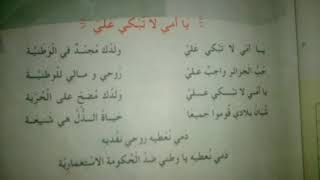 يا أمي لا تبكي علي
يـا أمّي لا تبكي عَليّ ولدك مُجنّد في الوَطنيّة
حُبّ الجزائر واجبٌ عليّ رُوحي و مالي للوَطنيّة
يا أمّي لا تبكي عَليّ ولدُكَ مُضَحّ على الحُرّية
شُبّان بلادي قُوموا جميعا حَياةُ الذّل هي شنيعة
دمي نُعطيه روحي نَفديه
دَمي نُعطيه يا وطني ضدّ الحُكومة الاستعماريّة